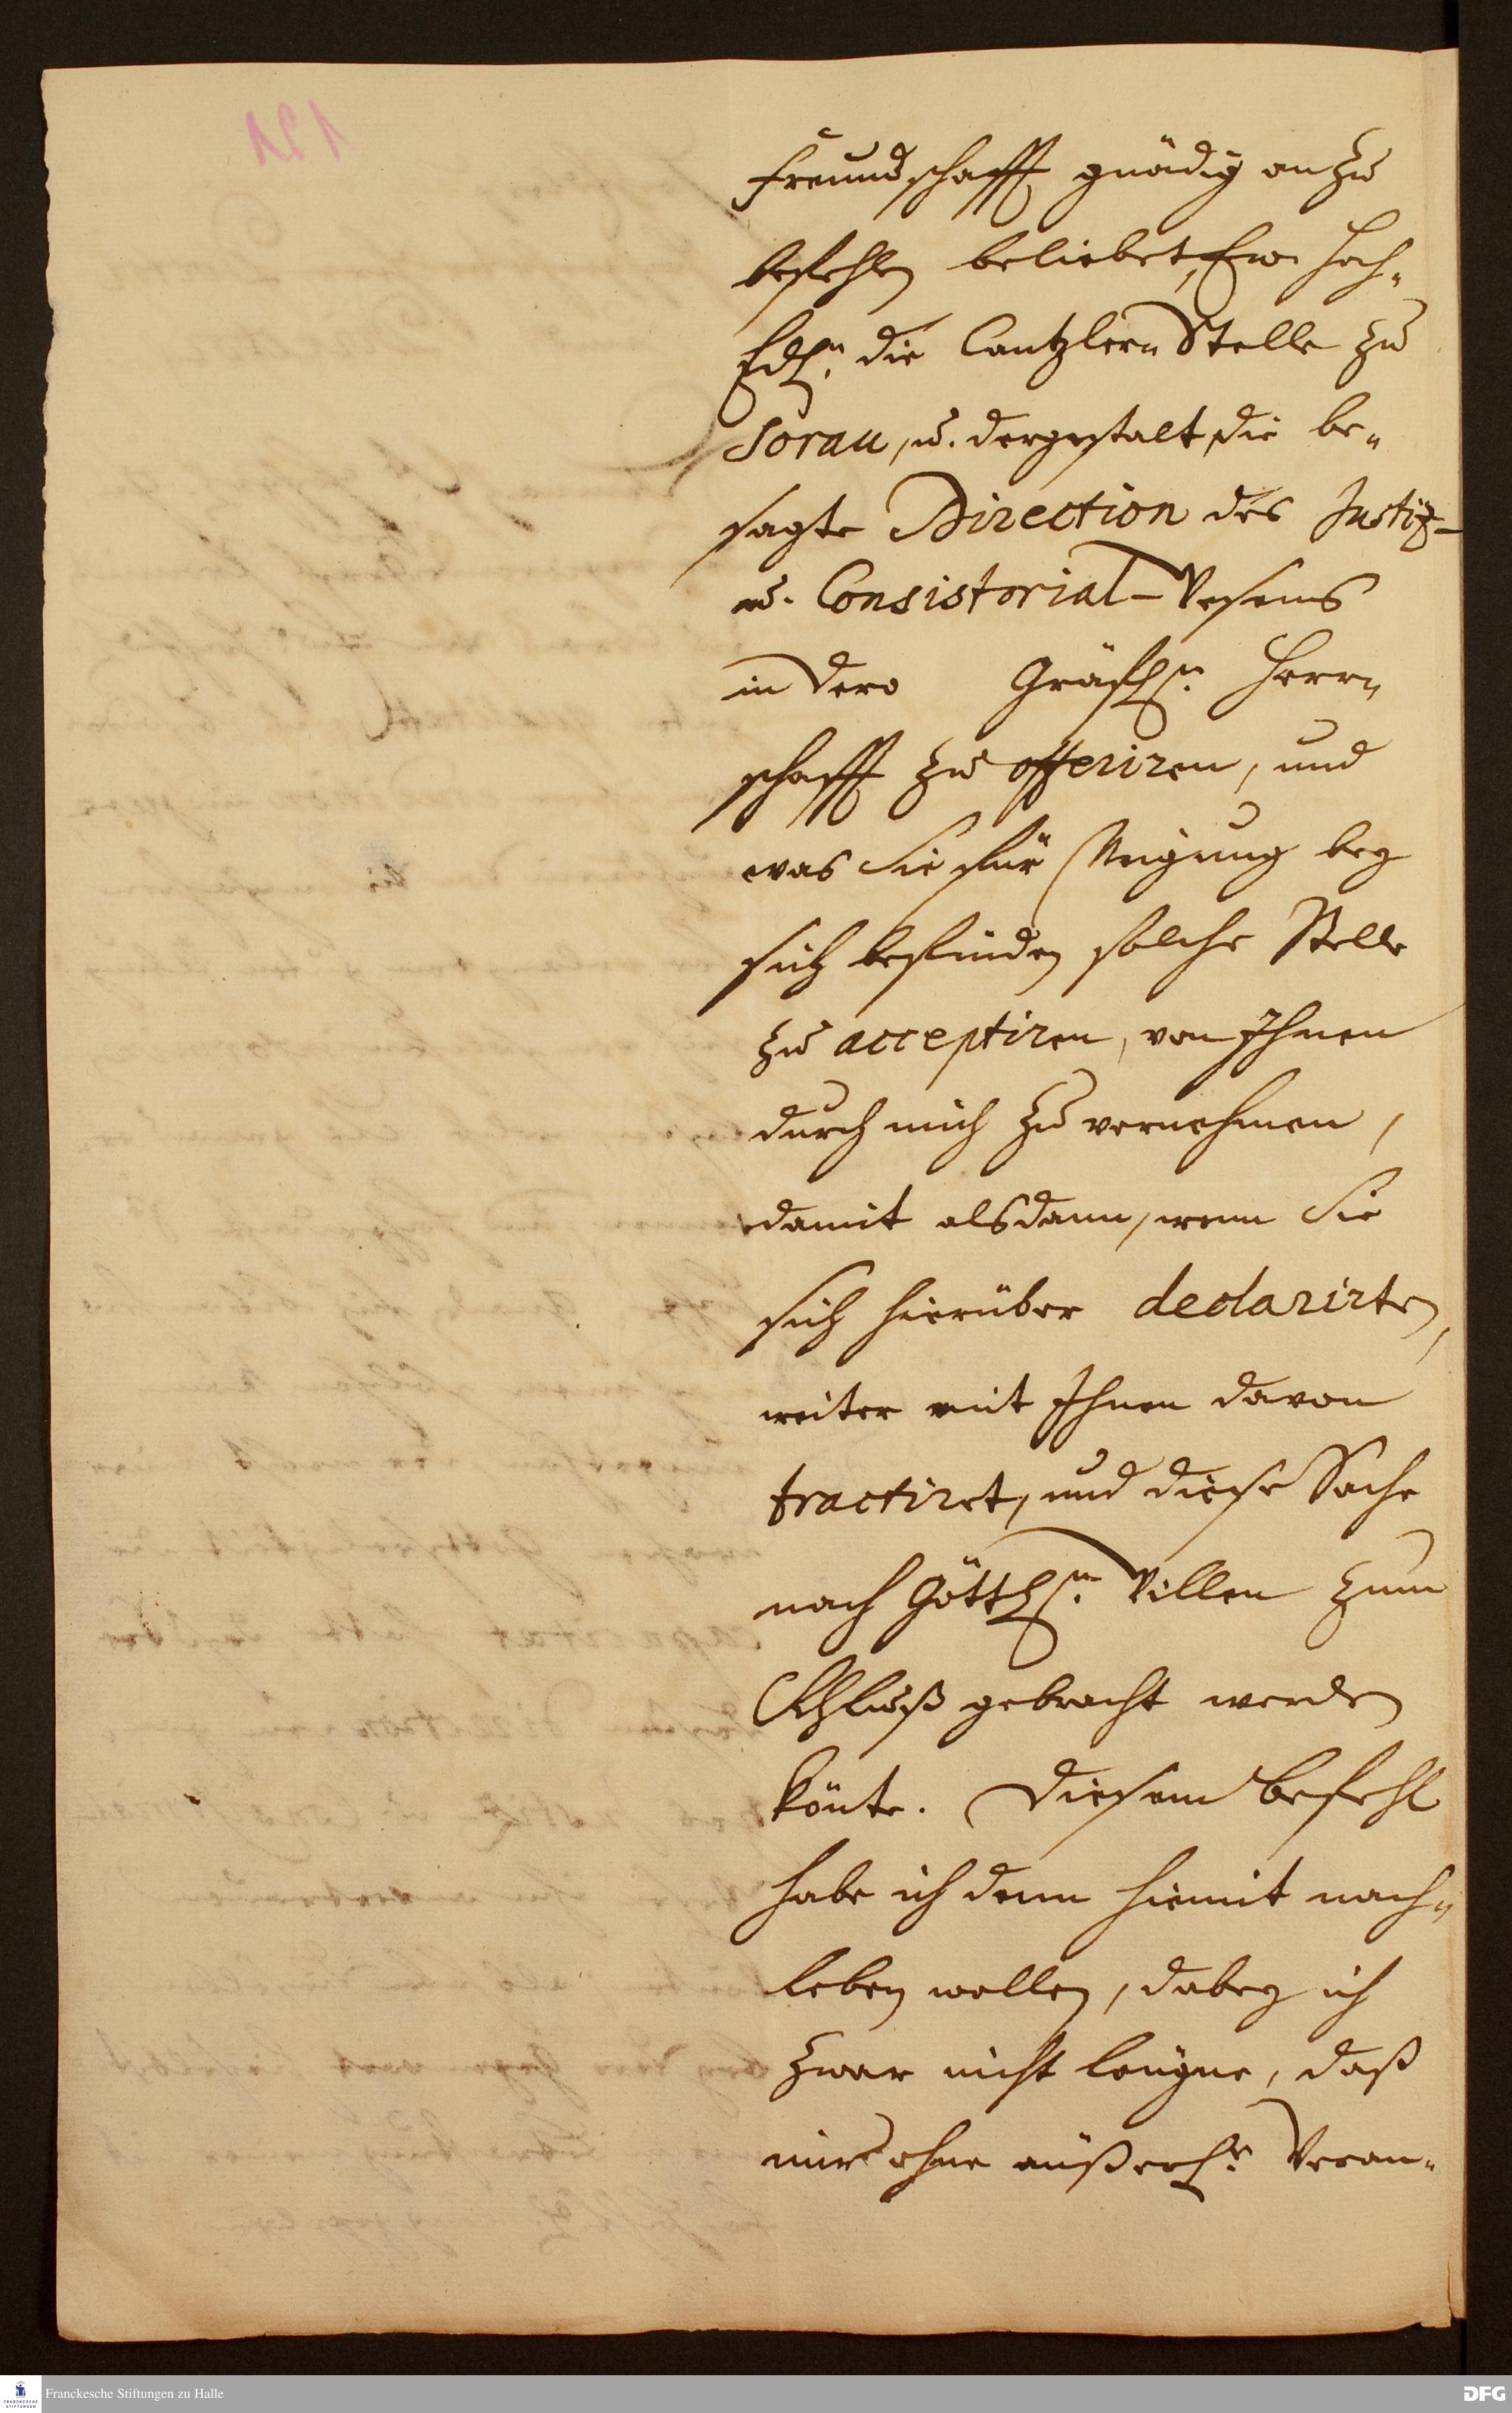 freundschafft gnädig an zu
befehlen beliebet, Ew. Hoch-
Edl. die Cantzler-Stelle zu
Sorau, u. dergestalt die be-
sagte Direction des Justiz-
u. Consistorial-Wesens
in dero Gräfl. Herr-
schafft zu offeriren, und
was Sie für Neigung bey
sich befinden solche Stelle
zu acceptiren, von Ihnen
durch mich zu vernehmen,
damit alsdann, wenn Sie
sich hierüber declarirten,
weiter mit Ihnen davon
tractiret, und diese Sache
nach Göttl. Willen zum
Schluß gebracht werden
könte. Diesem Befehl
habe ich denn hiemit nach-
leben wollen, dabey ich
zwar nicht leugne, daß
mir ohne äußerl. Veran-
121
Franckesche Stiftungen zu Halle
DFG